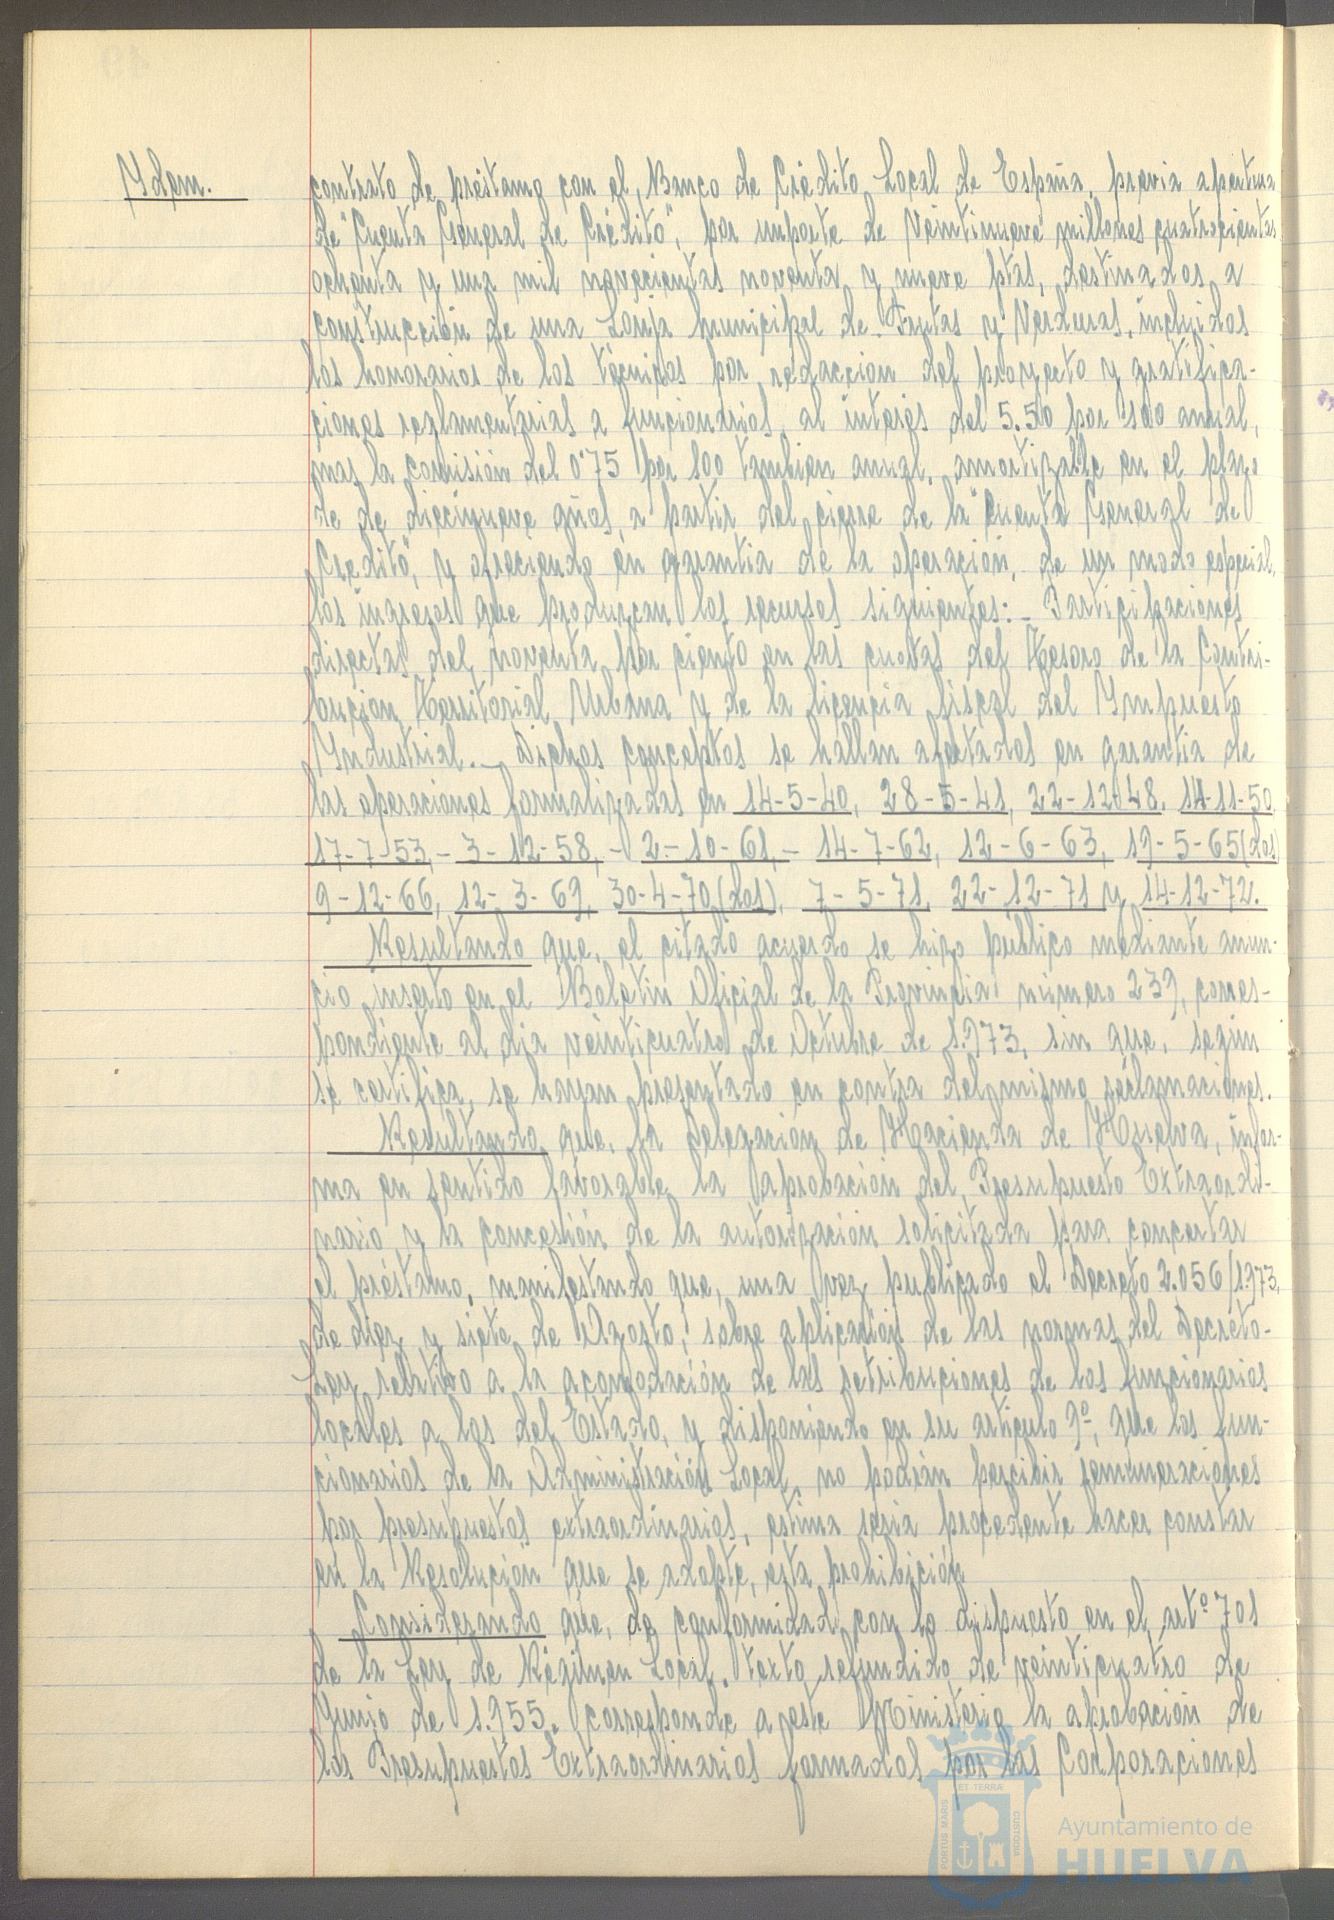 Ydem.
contrato de préstamo con el, Banco de Crédito Local de España, previa apertura
de "Cuenta General de Crédito", por importe de Veintinueve millones cuatrocientas
ochenta y una mil novecientas noventa y nueve ptas, destinados a
construcción de una Lonja Municipal de Frutas y Verduras, incluidos
los honorarios de los técnicos por redacción del proyecto y gratifica-
ciones reglamentarias a funcionarios, al interés del 5.50 por 100 anual,
mas la comisión del 0'75 por 100 tambien anual, amortizable en el plazo
de de diecinueve años, a partir del cierre de la "Cuenta General de
Crédito", y ofreciendo en garantia de la operación, de un modo especial,
los ingresos que produzcan los recursos siguientes:- Participaciones
directas del noventa por ciento en las cuotas del Tesoro de la Contri-
bución Territorial Urbana y de la licencia fiscal del Ympuesto
Yndustrial.- Dichos conceptos se hallan afectados en garantia de
las operaciones formalizadas en 14-5-40, 28-5-41, 22-12-48, 14-11-50,
17-7-53,- 3-12-58,- 2-10-61,- 14-7-62, 12-6-63, 19-5-65(dos)
9-12-66, 12-3-69, 30-4-70(dos), 7-5-71, 22-12-71 y 14-12-72.
Resultando que, el citado acuerdo se hizo público mediante anun-
cio inserto en el Boletin Oficial de la Provincia número 239, corres-
pondiente al dia veinticuatro de Octubre de 1.973, sin que, según
se certifica, se hayan presentado en contra del mismo reclamaciones.
Resultando que, la Delegación de Hacienda de Huelva, infor-
ma en sentido favorable la aprobación del Presupuesto Extraordi-
nario y la concesión de la autorización solicitada para concertar
el préstamo, manifestando que, una vez publicado el Decreto 2.056/1.973,
de diez y siete de Agosto, sobre aplicación de las normas del Decreto-
Ley relativo a la acomodación de las retribuciones de los funcionarios
locales a los del Estado, y disponiendo en su articulo 9º, que los fun-
cionarios de la Administración Local, no podrán percibir remuneraciones
por presupuestos extraordinarios, estima seria procedente hacer constar
en la Resolución que se adopte, esta prohibición
Considerando que, de conformidad con lo dispuesto en el artº 701
de la Ley de Régimen Local, texto refundido de veinticuatro de
Junio de 1.955, corresponde a este Ministerio la aprobación de
los Presupuestos Extraordinarios formados por las Corporaciones
PORTUS MARIS ET TERRÆ CUSTODIA
Ayuntamiento de
HUELVA